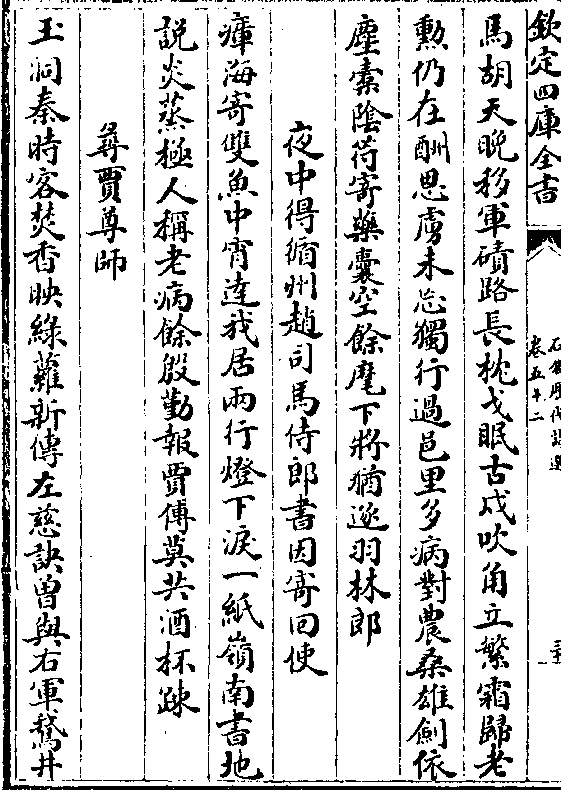 欽定四庫全書
石倉歴代詩選
卷五十二
馬胡天晩移軍磧路長枕戈眠古戍吹角立繁霜歸老
勲仍在酬恩虜未忘獨行過邑里多病對農桑雄劍依
塵橐陰符寄藥囊空餘麾下將猶逐羽林郎
夜中得循州趙司馬侍郎書因寄囘使
瘴海寄雙魚中宵達我居兩行燈下淚一紙嶺南書地
説炎蒸極人稱老病餘殷勤報賈傅莫共酒杯疎
尋賈尊師
玉洞秦時客焚香映緑蘿新傳左慈訣曽與右軍鵞井